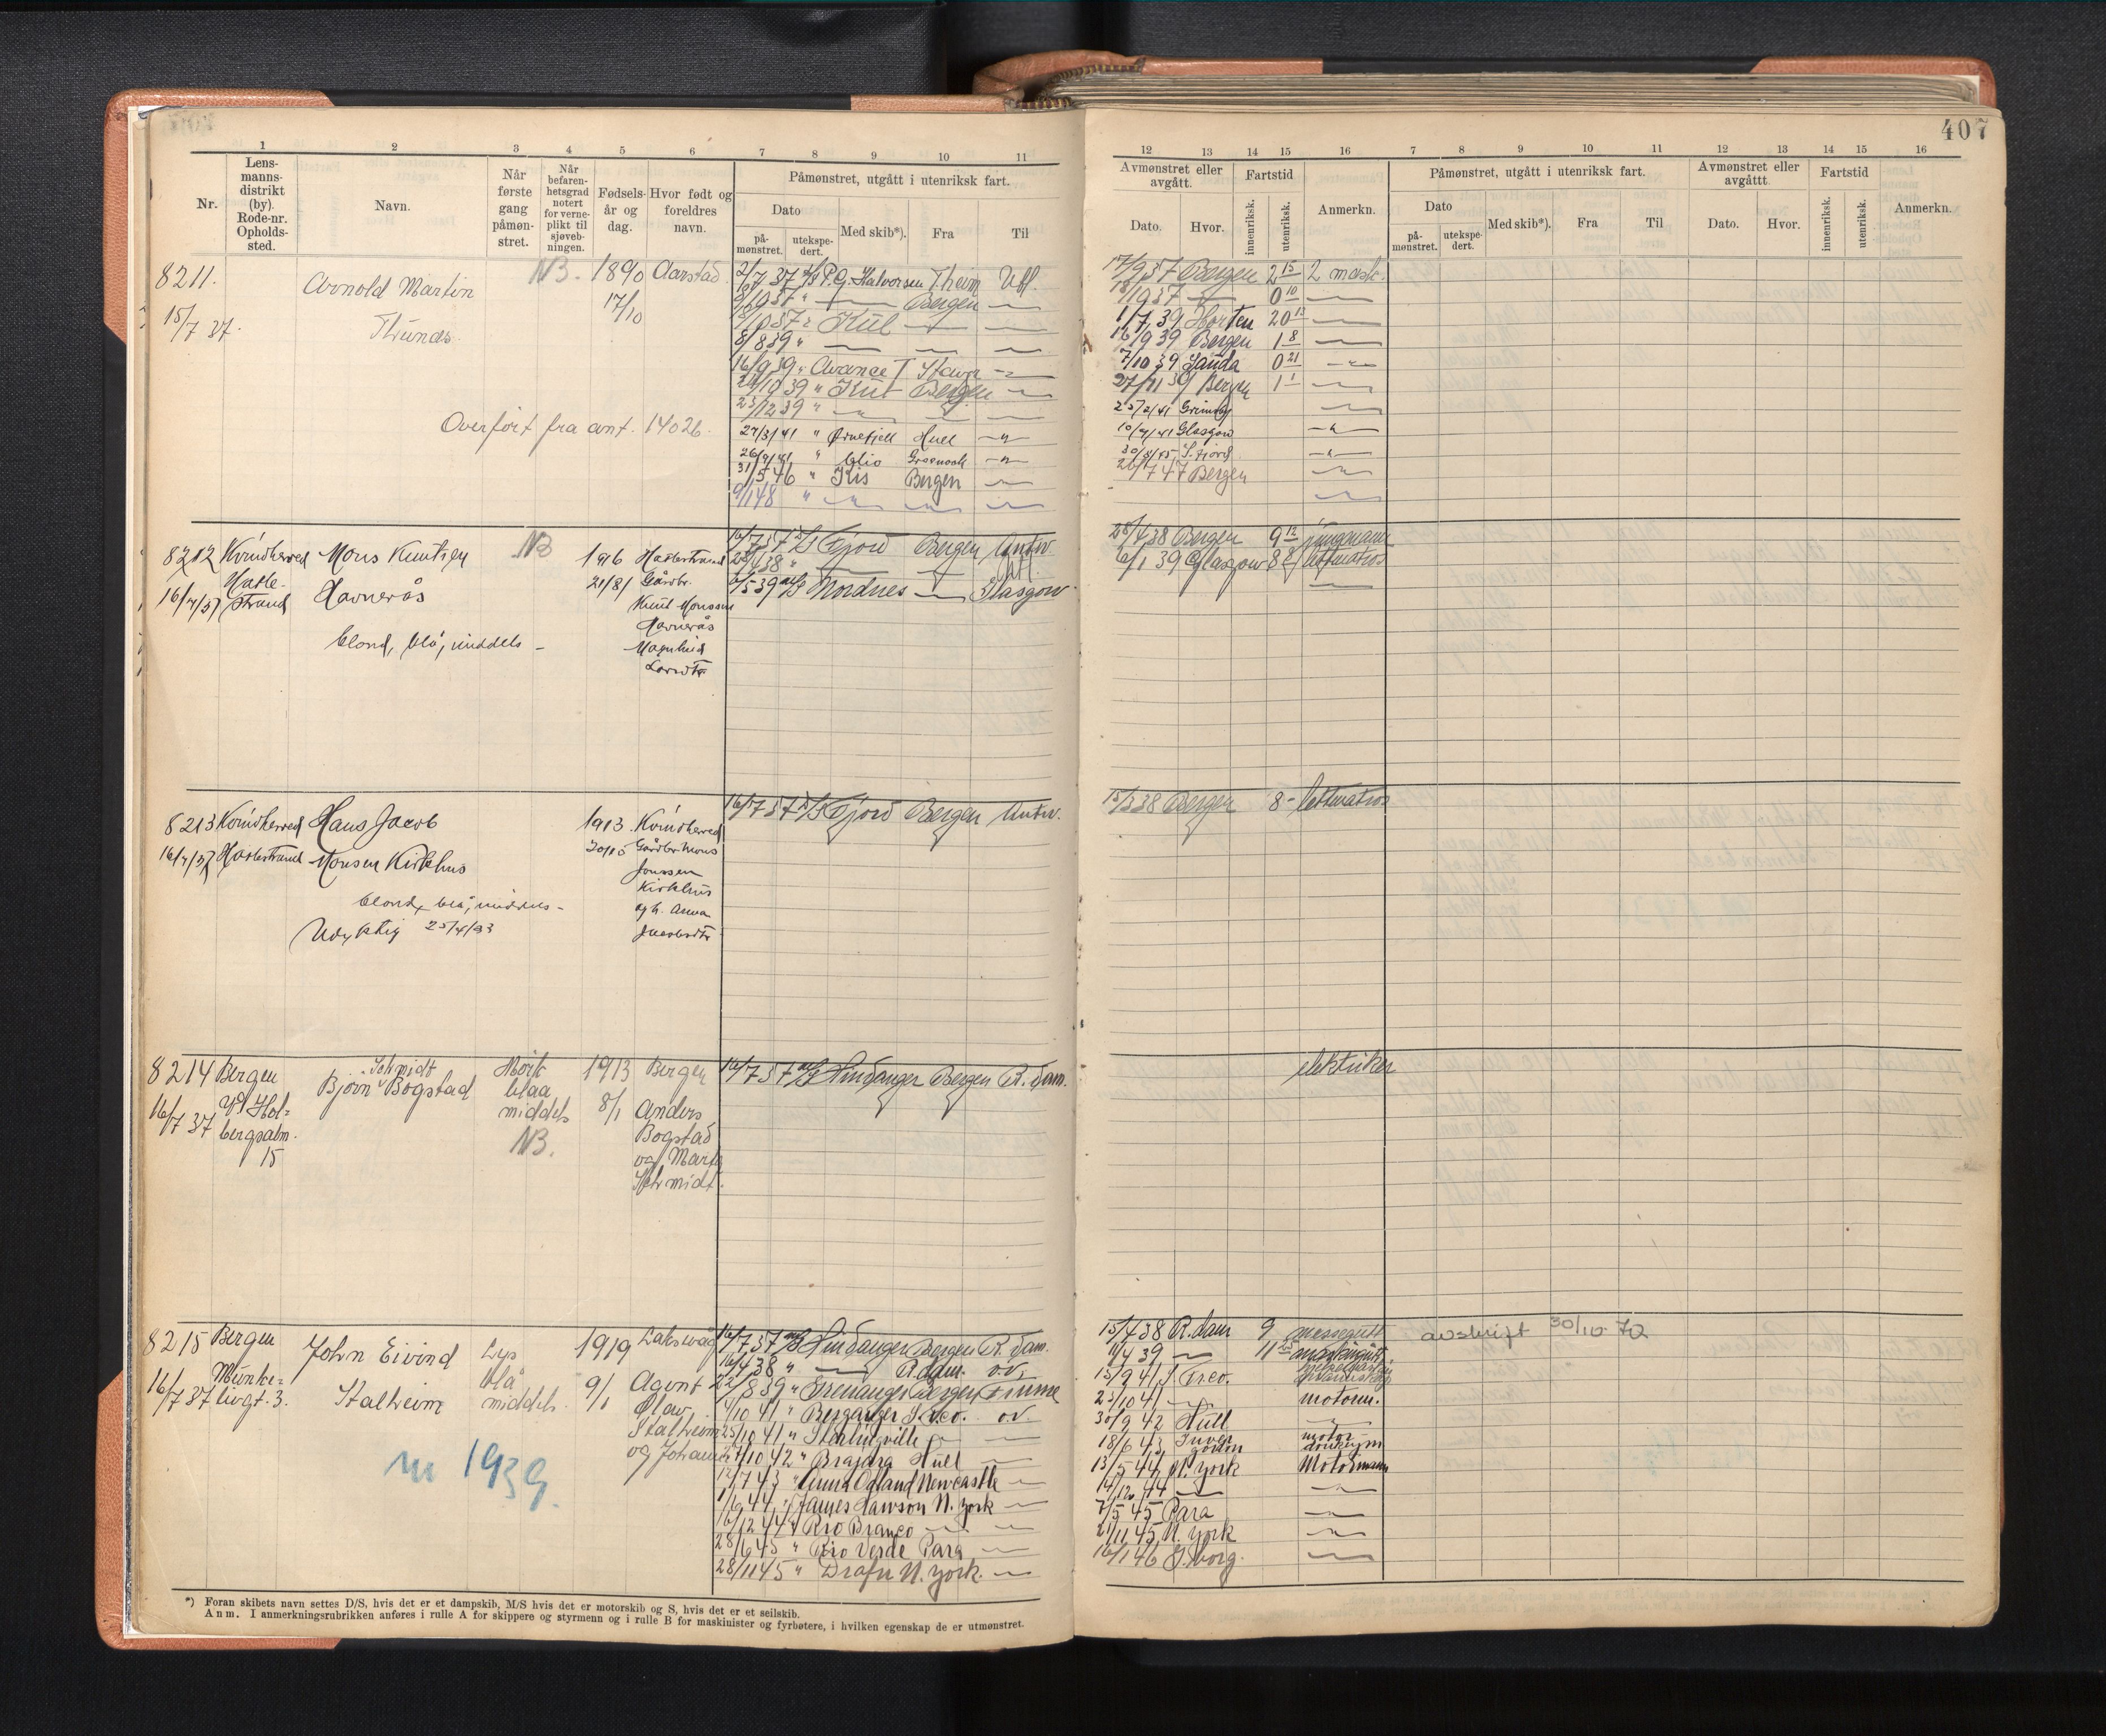 407
1 2 3 4 5 6 7 8 9 10 11
Nr.
Lens-
manns-
distrikt
(by).
Rode-nr.
Opholds-
sted.
Navn.
Når
første
gang
påmøn-
stret.
Når
befaren-
hetsgrad
notert
for verne-
plikt til
sjøveb-
ningen.
Fødsels-
år og
dag.
Hvor født og
foreldres
navn.
Påmønstret, utgått i utenriksk fart.
Dato
på-
mønstret.
utekspe-
dert.
Med skib*).
Fra
Til
12 13 14 15 16 7 8 9 10 11 12 13 14 15 16
Avmønstret eller
avgått.
Dato.
Hvor.
Fartstid
innenriksk.
utenriksk.
Anmerkn.
Påmønstret, utgått i utenriksk fart.
Dato
på-
mønstret.
utekspe-
dert.
Med skib*).
Fra
Til
Avmønstret eller
avgåttt.
Dato.
Hvor.
Fartstid
innenriksk.
utenriksk.
Anmerkn.
8211.
15/7 37.
Arnold Martin
Thunes
NB.
1890
17/10
Aarstad
Overført fra ant. 14026.
2/7 37 D/S P.G. Halvorsen T.heim Utl.
Bergen
8/8 39 "
16/9 39 " Avance I Stavn
Bergen
23/12 39 "
27/3/41 " Ørnefjell Hull
26/9/41 " Clio Greenock
31/5 46 " Kis Bergen
9/1 48 "
17/9 37 Bergen 2 15 2 mask.
0 10
1/7 39 Horten 20 13
16/9 39 Bergen 1 8
7/10 39 Sauda 0 21
27/11 39 Bergen 1 1
25/2/41 Grimsby
10/9/41 Glasgow
26/7 47 Bergen
8212 Kvindherred
Hatle-
strand
16/7/37
Mons Knutsen
Havnerås
blond, blå, middels -
NB
1916
21/8
Hatlestrand
Gårdbr.
Knut Monssen
Havnerås
Magnhild
Larsdtr
16/7 37 D/S Fjord Bergen Antw.
28/4 38 " Utl.
6/5 39 M/S Nordnes Glasgow
28/4 38 Bergen 9 12 jungmann
6/1 39 Glasgow 8 8 lettmatros
8213 Kvindherred
16/7/37 Hatlestrand
Hans Jacob
Monsen Kirkhus
blond, blå, middels -
Udyktig 25/4/33
1913
Kvindherred
Gårdbr. Mons
Jonssen
Kirkhus
og h. Anna
Jacobsdtr
16/7 37 D/S Fjord Bergen Antw.
15/3 38 Bergen 8 - lettmatros
8214 Bergen
16/7 37
bergsalm.
15
Schmidt
Bjørn Bogstad
Mørk
blaa
middels
NB.
1913
8/1
Bergen
Anders
Bogstad
og Marta
Schmidt.
16/7 37 M/S Hindanger Bergen R.dam.
elektriker
8215 Bergen
Munke-
16/7 37 livgt. 3.
John Eivind
Stalheim
Lys
blå
middels.
1919
9/1
Laksevåg
Agent
Olav
Stalheim
og Johanne
m 1939.
16/7 37 M/S Hindanger Bergen R.dam.
16/4 38 " R.dam. o.v.
22/8 39 " Grenanger Bergen Fiume
4/10 41 " Berganger S. Fco. o.v.
25/10 41 " Sterlingville
27/10 42 " Brajara Hull
12/7 43 " Anna Odland Newcastle
1/6 44 " James Hawson N. york
16/12 44 " Rio Branco
28/6 45 " Rio Verde Para
28/11 45 " Drafn N. york.
15/4 38 R.dam 9 messegutt
11/4 39
15/9 41 S. Frco.
23/10 41 motorm.
30/9 42 Hull
18/6 43 Inver
gordon
motor-
donkeym
13/5 44 N. york Motormann
14/12 44
7/5 45 Para
21/11 45 N. york
16/1 46
avskrift 30/10-72
*) Foran skibets navn settes D/S, hvis det er et dampskib, M/S hvis det er motorskib og S, hvis det er et seilskib.
Anm. I anmerkningsrubrikken anføres i rulle A for skippere og styrmenn og i rulle B for maskinister og fyrbøtere, i hvilken egenskap de er utmønstret.